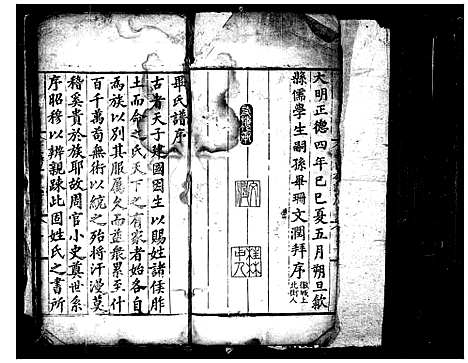 大明正德四年己巳夏五月朔旦歙
縣儒學生嗣孫畢珊文潤拜序
徽城上
北街人
桂林
中人
畢氏譜序
古者天子建國因生以賜姓諸侯胙
土而命之氏天下之有家者始各自
為族以別其服屬久而益衆累至什
百千萬苟無術以統之殆將汗漫莫
稽矣貴於族耶故周官小史奠世系
序昭穆以辨親踈此固姓氏之書所